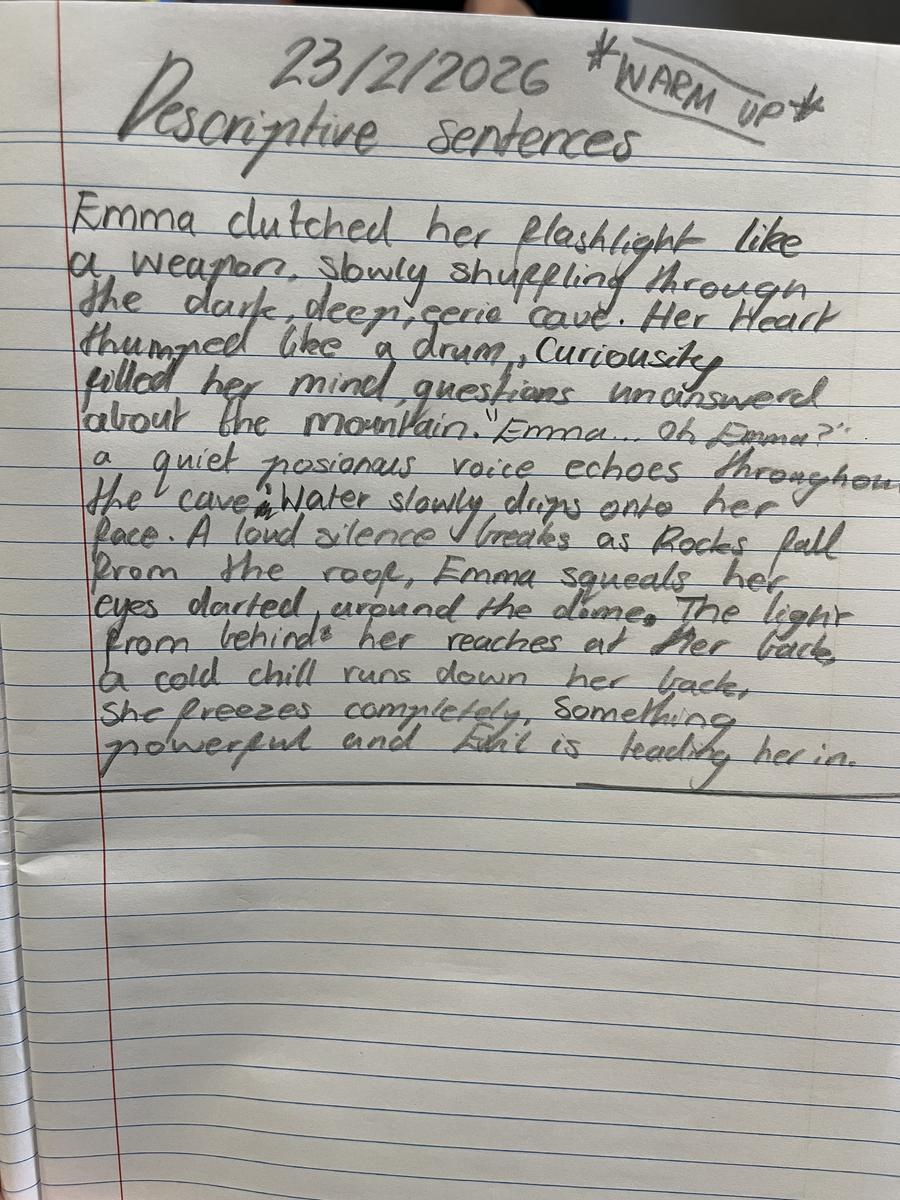 23/2/2026
*WARM UP*
Descriptive sentences
Emma clutched her flashlight like
a weapon, slowly shuffling through
the dark, deep, eerie cave. Her Heart
thumped like a drum, Curiousity
filled her mind, questions unanswerd
about the mountain. "Emma... Oh Emma?"
a quiet posionous voice echoes throughou
the cave. Water slowly drips onto her
face. A loud silence breaks as Rocks fall
from the roof, Emma squeals her
eyes darted around the dome. The light
from behind her reaches at Her back,
a cold chill runs down her back,
She freezes completely, Something
powerful and Evil is leading her in.